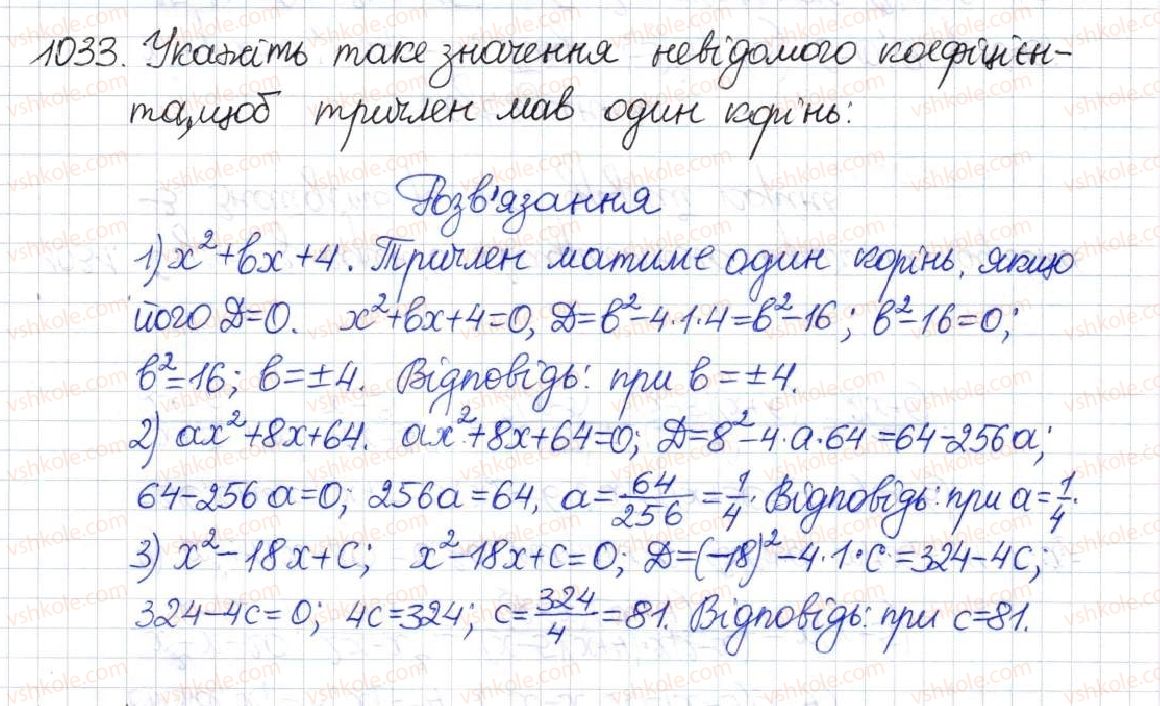 1033. Укажіть таке значення невідомого коефіцієн-
та, щоб тричлен мав один корінь:
Розв'язання
1) x²+bx+4. Тричлен матиме один корінь, якщо
його D=0. x²+bx+4=0, D=b²-4·1·4=b²-16; b²-16=0;
b²=16; b=±4. Відповідь: при b=±4.
2) ax²+8x+64. ax²+8x+64=0; D=8²-4·a·64=64-256a;
64-256a=0; 256a=64, a=64/256=1/4. Відповідь: при a=1/4.
3) x²-18x+c; x²-18x+c=0; D=(-18)²-4·1·c=324-4c;
324-4c=0; 4c=324; c=324/4=81. Відповідь: при c=81.